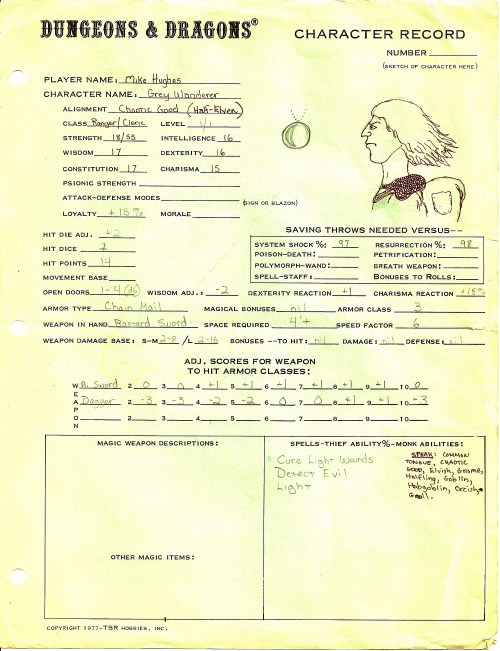 DUNGEONS & DRAGONS®
CHARACTER RECORD
NUMBER
(SKETCH OF CHARACTER HERE)
PLAYER NAME: Mike Hughes
CHARACTER NAME: Grey Wanderer
ALIGNMENT Chaotic Good (Half-Elven)
CLASS Ranger/Cleric LEVEL 1/1
STRENGTH 18/55 INTELLIGENCE 16
WISDOM 17 DEXTERITY 16
CONSTITUTION 17 CHARISMA 15
PSIONIC STRENGTH
ATTACK-DEFENSE MODES
(SIGN OR BLAZON)
LOYALTY +15% MORALE
SAVING THROWS NEEDED VERSUS--
HIT DIE ADJ. +2
HIT DICE 2
HIT POINTS 14
MOVEMENT BASE
SYSTEM SHOCK %: 97 RESURRECTION %: 98
POISON-DEATH: PETRIFICATION:
POLYMORPH-WAND: BREATH WEAPON:
SPELL-STAFF: BONUSES TO ROLLS:
OPEN DOORS 1-4 (d6) WISDOM ADJ. -2 DEXTERITY REACTION +1 CHARISMA REACTION +15%
ARMOR TYPE Chain Mail MAGICAL BONUSES nil ARMOR CLASS 3
WEAPON IN HAND Bastard Sword SPACE REQUIRED 4'+ SPEED FACTOR 6
WEAPON DAMAGE BASE: S-M 2-8 /L 2-16 BONUSES --TO HIT: nil DAMAGE: nil DEFENSE: nil
ADJ. SCORES FOR WEAPON
TO HIT ARMOR CLASSES:
WEAPON
B. Sword 2 0 3 0 4 +1 5 +1 6 +1 7 +1 8 +1 9 +1 10 0
Dagger 2 -3 3 -3 4 -2 5 -2 6 0 7 0 8 +1 9 +1 10 +3
2 3 4 5 6 7 8 9 10
MAGIC WEAPON DESCRIPTIONS:
OTHER MAGIC ITEMS:
SPELLS-THIEF ABILITY%-MONK ABILITIES:
Cure Light Wounds
Detect Evil
Light
SPEAK: COMMON
TONGUE, CHAOTIC
GOOD, Elvish, Gnome,
Halfling, Goblin,
Hobgoblin, Orcish,
Gnoll.
COPYRIGHT 1977-TSR HOBBIES, INC.